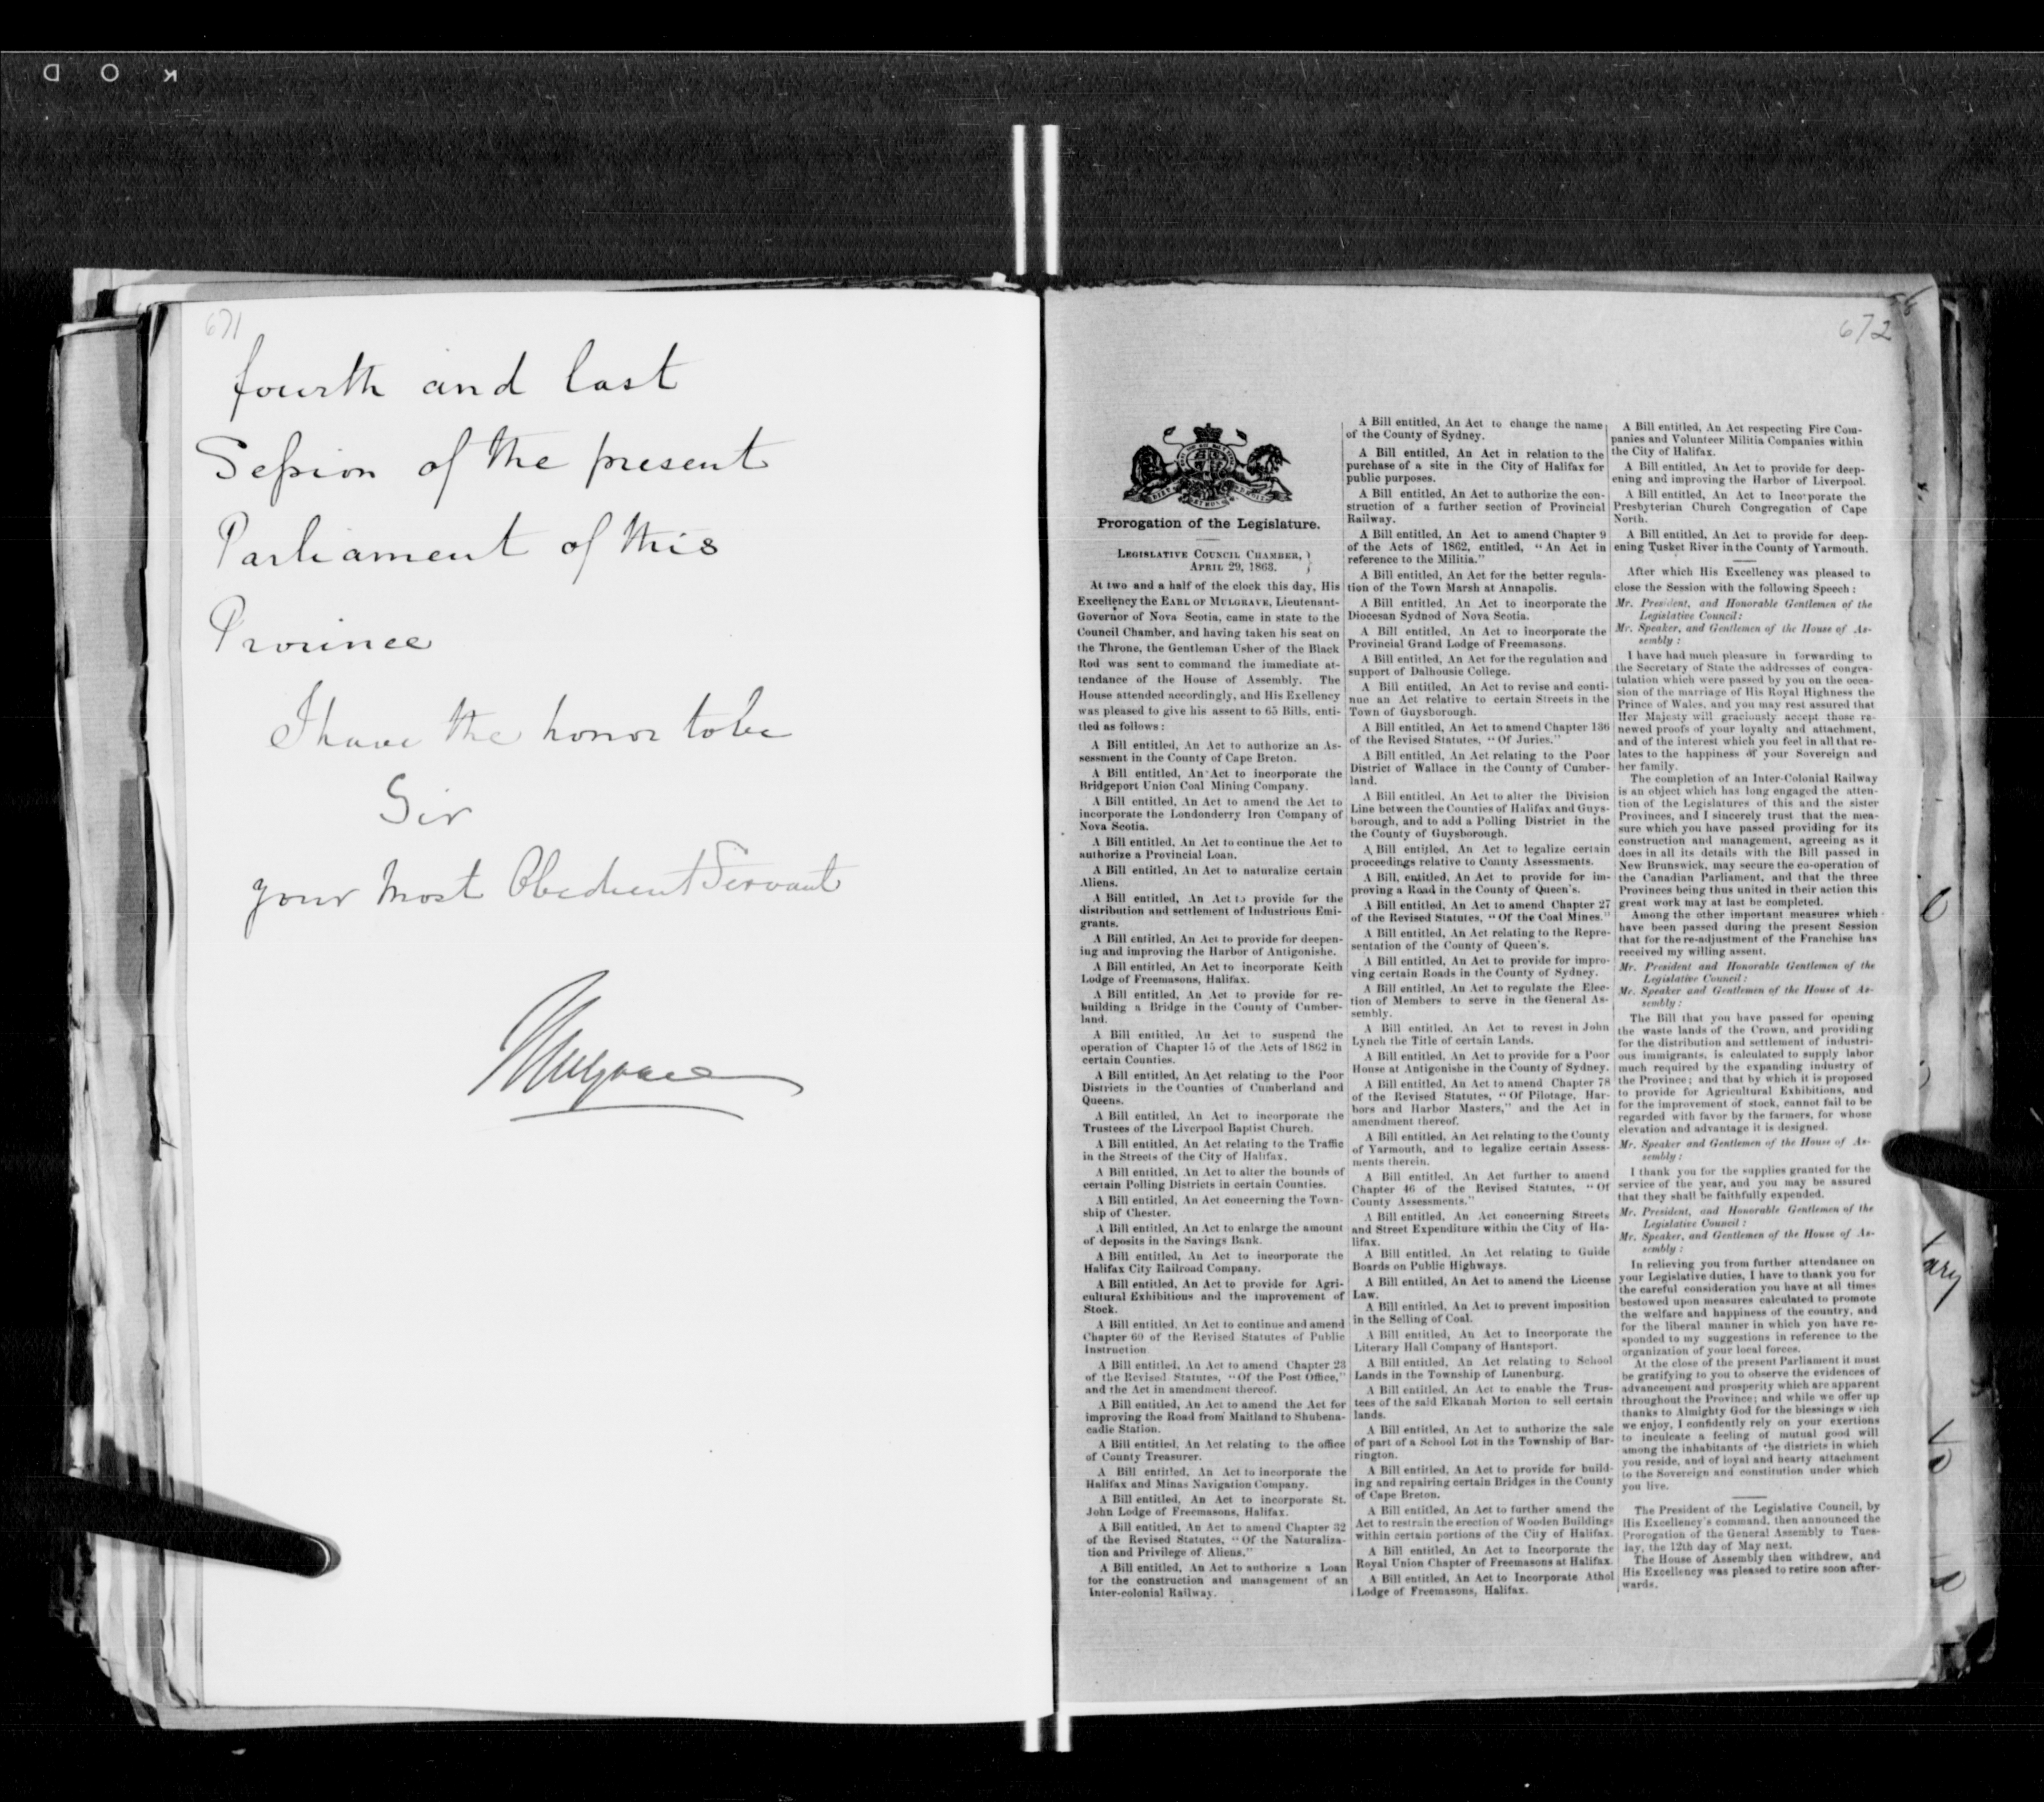 K O D
671
fourth and last
Session of the present
Parliament of this
Province
I have the honor to be
Sir
your Most Obedient Servant
Mulgrave
672
Prorogation of the Legislature.
LEGISLATIVE COUNCIL CHAMBER,
APRIL 29, 1863.
At two and a half of the clock this day, His
Excellency the EARL OF MULGRAVE, Lieutenant-
Governor of Nova Scotia, came in state to the
Council Chamber, and having taken his seat on
the Throne, the Gentleman Usher of the Black
Rod was sent to command the immediate at-
tendance of the House of Assembly. The
House attended accordingly, and His Exellency
was pleased to give his assent to 65 Bills, enti-
tled as follows:
A Bill entitled, An Act to authorize an As-
sessment in the County of Cape Breton.
A Bill entitled, An Act to incorporate the
Bridgeport Union Coal Mining Company.
A Bill entitled, An Act to amend the Act to
incorporate the Londonderry Iron Company of
Nova Scotia.
A Bill entitled, An Act to continue the Act to
authorize a Provincial Loan.
A Bill entitled, An Act to naturalize certain
Aliens.
A Bill entitled, An Act to provide for the
distribution and settlement of Industrious Emi-
grants.
A Bill entitled, An Act to provide for deepen-
ing and improving the Harbor of Antigonishe.
A Bill entitled, An Act to incorporate Keith
Lodge of Freemasons, Halifax.
A Bill entitled, An Act to provide for re-
building a Bridge in the County of Cumber-
land.
A Bill entitled, An Act to suspend the
operation of Chapter 15 of the Acts of 1862 in
certain Counties.
A Bill entitled, An Act relating to the Poor
Districts in the Counties of Cumberland and
Queens.
A Bill entitled, An Act to incorporate the
Trustees of the Liverpool Baptist Church.
A Bill entitled, An Act relating to the Traffic
in the Streets of the City of Halifax.
A Bill entitled, An Act to alter the bounds of
certain Polling Districts in certain Counties.
A Bill entitled, An Act concerning the Town-
ship of Chester.
A Bill entitled, An Act to enlarge the amount
of deposits in the Savings Bank.
A Bill entitled, An Act to incorporate the
Halifax City Railroad Company.
A Bill entitled, An Act to provide for Agri-
cultural Exhibitions and the improvement of
Stock.
A Bill entitled, An Act to continue and amend
Chapter 60 of the Revised Statutes of Public
Instruction
A Bill entitled, An Act to amend Chapter 23
of the Revised Statutes, "Of the Post Office,"
and the Act in amendment thereof.
A Bill entitled, An Act to amend the Act for
improving the Road from Maitland to Shubena-
cadie Station.
A Bill entitled, An Act relating to the office
of County Treasurer.
A Bill entitled, An Act to incorporate the
Halifax and Minas Navigation Company.
A Bill entitled, An Act to incorporate St.
John Lodge of Freemasons, Halifax.
A Bill entitled, An Act to amend Chapter 32
of the Revised Statutes, "Of the Naturaliza-
tion and Privilege of Aliens."
A Bill entitled, An Act to authorize a Loan
for the construction and management of an
Inter-colonial Railway.
A Bill entitled, An Act to change the name
of the County of Sydney.
A Bill entitled, An Act in relation to the
purchase of a site in the City of Halifax for
public purposes.
A Bill entitled, An Act to authorize the con-
struction of a further section of Provincial
Railway.
A Bill entitled, An Act to amend Chapter 9
of the Acts of 1862, entitled, "An Act in
reference to the Militia."
A Bill entitled, An Act for the better regula-
tion of the Town Marsh at Annapolis.
A Bill entitled, An Act to incorporate the
Diocesan Sydnod of Nova Scotia.
A Bill entitled, An Act to incorporate the
Provincial Grand Lodge of Freemasons.
A Bill entitled, An Act for the regulation and
support of Dalhousie College.
A Bill entitled, An Act to revise and conti-
nue an Act relative to certain Streets in the
Town of Guysborough.
A Bill entitled, An Act to amend Chapter 136
of the Revised Statutes, "Of Juries."
A Bill entitled, An Act relating to the Poor
District of Wallace in the County of Cumber-
land.
A Bill entitled, An Act to alter the Division
Line between the Counties of Halifax and Guys-
borough, and to add a Polling District in the
the County of Guysborough.
A Bill entitled, An Act to legalize certain
proceedings relative to County Assessments.
A Bill, entitled, An Act to provide for im-
proving a Road in the County of Queen's.
A Bill entitled, An Act to amend Chapter 27
of the Revised Statutes, "Of the Coal Mines."
A Bill entitled, An Act relating to the Repre-
sentation of the County of Queen's.
A Bill entitled, An Act to provide for impro-
ving certain Roads in the County of Sydney.
A Bill entitled, An Act to regulate the Elec-
tion of Members to serve in the General As-
sembly.
A Bill entitled, An Act to revest in John
Lynch the Title of certain Lands.
A Bill entitled, An Act to provide for a Poor
House at Antigonishe in the County of Sydney.
A Bill entitled, An Act to amend Chapter 78
of the Revised Statutes, "Of Pilotage, Har-
bors and Harbor Masters," and the Act in
amendment thereof.
A Bill entitled, An Act relating to the County
of Yarmouth, and to legalize certain Assess-
ments therein.
A Bill entitled, An Act further to amend
Chapter 46 of the Revised Statutes, "Of
County Assessments."
A Bill entitled, An Act concerning Streets
and Street Expenditure within the City of Ha-
lifax.
A Bill entitled, An Act relating to Guide
Boards on Public Highways.
A Bill entitled, An Act to amend the License
Law.
A Bill entitled, An Act to prevent imposition
in the Selling of Coal.
A Bill entitled, An Act to Incorporate the
Literary Hall Company of Hantsport.
A Bill entitled, An Act relating to School
Lands in the Township of Lunenburg.
A Bill entitled, An Act to enable the Trus-
tees of the said Elkanah Morton to sell certain
lands.
A Bill entitled, An Act to authorize the sale
of part of a School Lot in the Township of Bar-
rington.
A Bill entitled, An Act to provide for build-
ing and repairing certain Bridges in the County
of Cape Breton.
A Bill entitled, An Act to further amend the
Act to restrain the erection of Wooden Buildings
within certain portions of the City of Halifax.
A Bill entitled, An Act to Incorporate the
Royal Union Chapter of Freemasons at Halifax.
A Bill entitled, An Act to Incorporate Athol
Lodge of Freemasons, Halifax.
A Bill entitled, An Act respecting Fire Com-
panies and Volunteer Militia Companies within
the City of Halifax.
A Bill entitled, An Act to provide for deep-
ening and improving the Harbor of Liverpool.
A Bill entitled, An Act to Incorporate the
Presbyterian Church Congregation of Cape
North.
A Bill entitled, An Act to provide for deep-
ening Tusket River in the County of Yarmouth.
After which His Excellency was pleased to
close the Session with the following Speech:
Mr. President, and Honorable Gentlemen of the
Legislative Council:
Mr. Speaker, and Gentlemen of the House of As-
sembly:
I have had much pleasure in forwarding to
the Secretary of State the addresses of congra-
tulation which were passed by you on the occa-
sion of the marriage of His Royal Highness the
Prince of Wales, and you may rest assured that
Her Majesty will graciously accept those re-
newed proofs of your loyalty and attachment,
and of the interest which you feel in all that re-
lates to the happiness of your Sovereign and
her family.
The completion of an Inter-Colonial Railway
is an object which has long engaged the atten-
tion of the Legislatures of this and the sister
Provinces, and I sincerely trust that the mea-
sure which you have passed providing for its
construction and management, agreeing as it
does in all its details with the Bill passed in
New Brunswick, may secure the co-operation of
the Canadian Parliament, and that the three
Provinces being thus united in their action this
great work may at last be completed.
Among the other important measures which
have been passed during the present Session
that for the re-adjustment of the Franchise has
received my willing assent.
Mr. President and Honorable Gentlemen of the
Legislative Council:
Mr. Speaker and Gentlemen of the House of As-
sembly:
The Bill that you have passed for opening
the waste lands of the Crown, and providing
for the distribution and settlement of industri-
ous immigrants, is calculated to supply labor
much required by the expanding industry of
the Province; and that by which it is proposed
to provide for Agricultural Exhibitions, and
for the improvement of stock, cannot fail to be
regarded with favor by the farmers, for whose
elevation and advantage it is designed.
Mr. Speaker and Gentlemen of the House of As-
sembly:
I thank you for the supplies granted for the
service of the year, and you may be assured
that they shall be faithfully expended.
Mr. President, and Honorable Gentlemen of the
Legislative Council:
Mr. Speaker, and Gentlemen of the House of As-
sembly:
In relieving you from further attendance on
your Legislative duties, I have to thank you for
the careful consideration you have at all times
bestowed upon measures calculated to promote
the welfare and happiness of the country, and
for the liberal manner in which you have re-
sponded to my suggestions in reference to the
organization of your local forces.
At the close of the present Parliament it must
be gratifying to you to observe the evidences of
advancement and prosperity which are apparent
throughout the Province; and while we offer up
thanks to Almighty God for the blessings which
we enjoy, I confidently rely on your exertions
to inculcate a feeling of mutual good will
among the inhabitants of the districts in which
you reside, and of loyal and hearty attachment
to the Sovereign and constitution under which
you live.
The President of the Legislative Council, by
His Excellency's command, then announced the
Prorogation of the General Assembly to Tues-
day, the 12th day of May next.
The House of Assembly then withdrew, and
His Excellency was pleased to retire soon after-
wards.